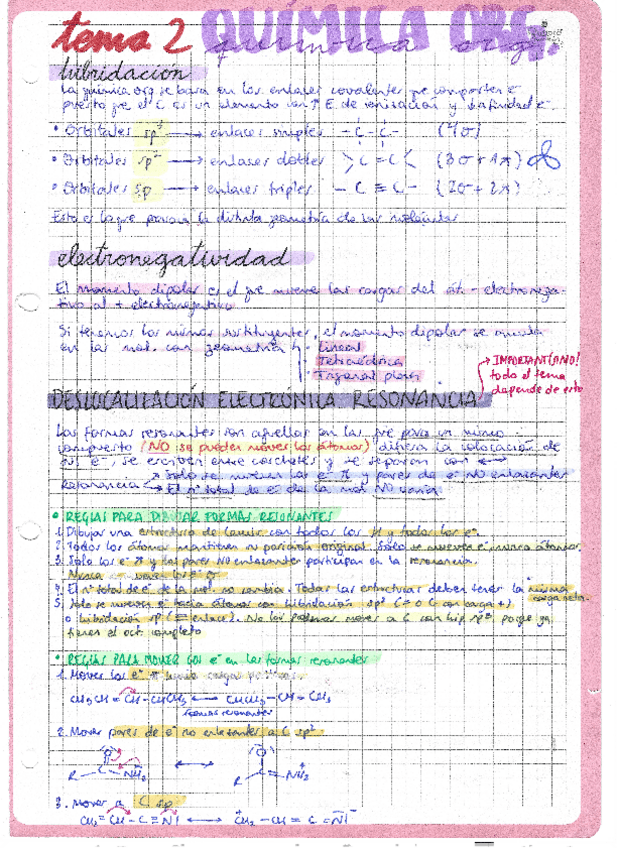 tema 2 QUÍMICA ORG.
química org.
hibridación
La química org se basa en los enlaces covalentes
puesto que el C es un elemento con ↑ E de ionización y afinidad e⁻
• Orbitales sp³ → enlaces simples -C-C- (4σ)
• Orbitales sp² → enlaces dobles >C=C< (3σ+1π)
• Orbitales sp → enlaces triples -C≡C- (2σ+2π)
Esto es lo que marca la distinta geometría de las moléculas
electronegatividad
El momento dipolar es el que mueve las cargas del át. - electronega-
tivo al + electronegativo
Si tenemos los mismos sustituyentes, el momento dipolar se anula
en las mol. con geometría
• Lineal
• Tetraédrica
• Trigonal plana
→ IMPORTANTÍSIMO!
todo el tema
depende de esto
DESLOCALIZACIÓN ELECTRÓNICA RESONANCIA
Las formas resonantes son aquellas en las que para un mismo
compuesto (NO se pueden mover los átomos) difiera la colocación de
sus e⁻, se escriben entre corchetes y se separan con ↔
Resonancia
→ Solo se mueven los e⁻ π y pares de e⁻ NO enlazantes
→ El nº total de e⁻ de la mol. NO varía
• REGLAS PARA DIBUJAR FORMAS RESONANTES
1. Dibujar una estructura de Lewis con todos los y todos los e⁻.
2. Todos los átomos mantienen su posición original. Solo se mueven e⁻ nunca átomos.
3. Solo los e⁻ π y los pares NO enlazantes participan en la resonancia.
Nunca los e⁻ σ
4. El nº total de e⁻ de la mol. no cambia. Todas las estructuras deben tener la misma
carga neta.
5. Solo se mueven e⁻ hacia átomos con hibridación sp² (= o C con carga +)
o hibridación sp (≡ enlace). No los podemos mover a C con hib sp³ porque ya
tienen el oct. completo
• REGLAS PARA MOVER LOS e⁻ en las formas resonantes
1. Mover los e⁻ π
formas resonantes
2. Mover pares de e⁻ no enlazantes a C sp²
R-C-NH₂ ↔ R-C=NH₂
3. Mover a C sp
CH₂=CH-C≡N| ↔ CH₂-CH=C=N|